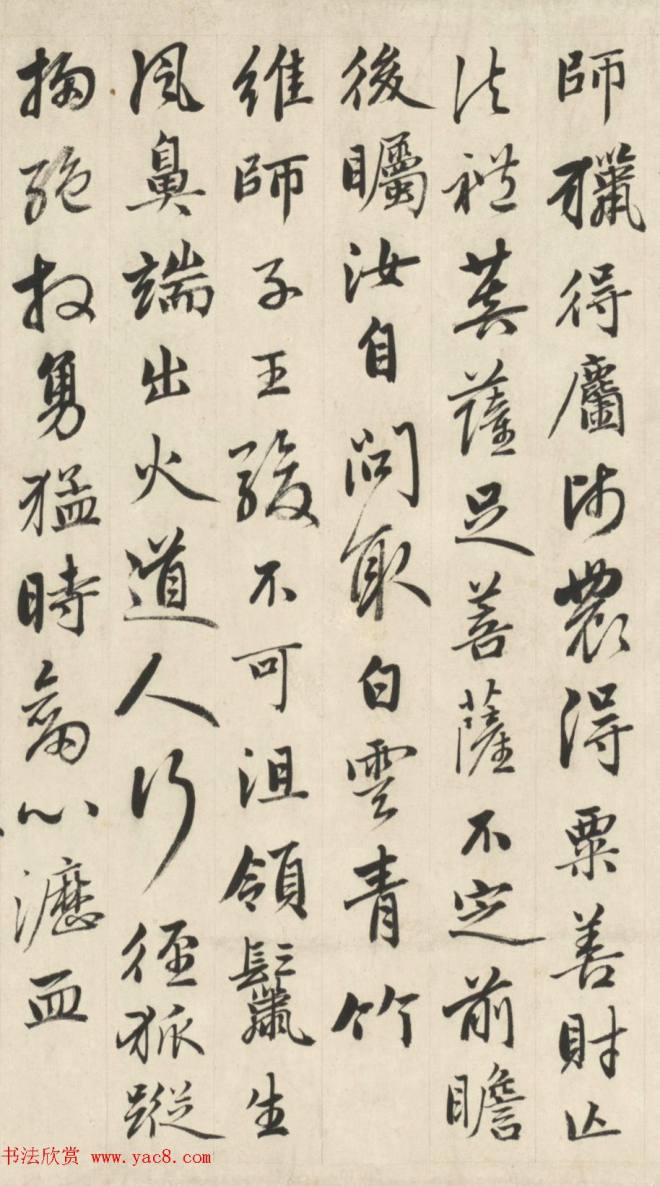 師獵得麕師農得粟善財亡
法禮其薩足菩薩不定前瞻
後矚汝自問取白雲青竹
維師子王駿不可沮領鬣生
風鼻端出火道人行徑狐蹤
勇猛時心瀝血
书法欣赏 www.yac8.com